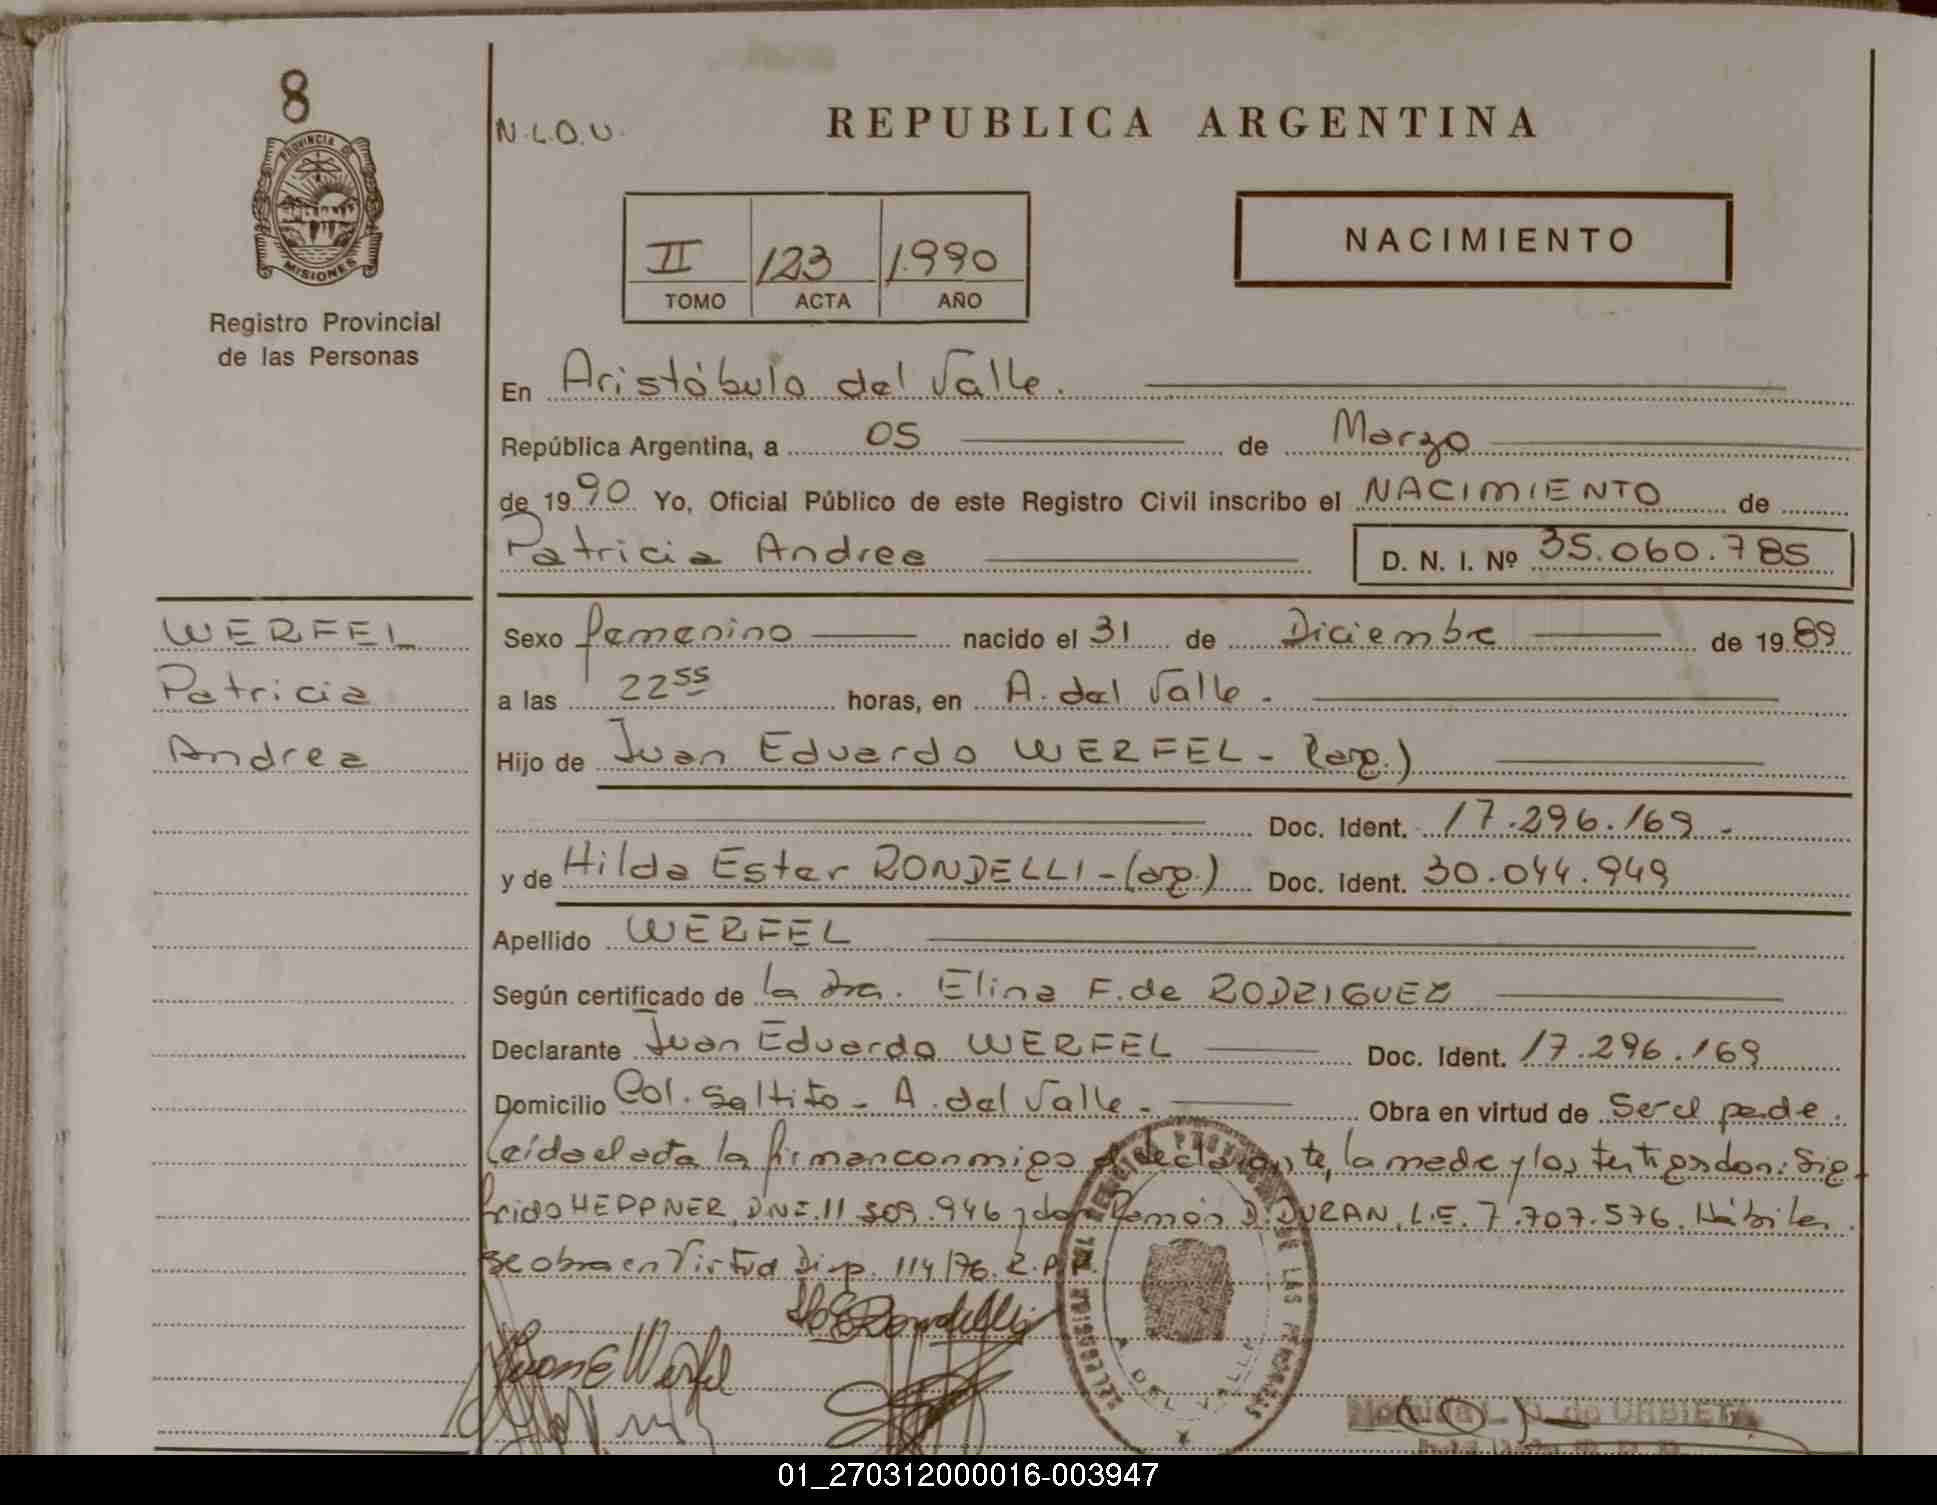 8
PROVINCIA DE
MISIONES
Registro Provincial
de las Personas
N.L.O.U.
REPUBLICA ARGENTINA
II 123 1.990
TOMO ACTA AÑO
NACIMIENTO
En Aristóbulo del Valle.
República Argentina, a 05 de Marzo
de 1990 Yo, Oficial Público de este Registro Civil inscribo el NACIMIENTO de
Patricia Andrea
D. N. I. Nº 35.060.785
WERFEL
Patricia
Andrea
Sexo femenino nacido el 31 de Diciembre de 1989
a las 22 55 horas, en A. del Valle.
Hijo de Juan Eduardo WERFEL - (arg.)
Doc. Ident. 17.296.169.-
y de Hilda Ester RONDELLI - (arg.) Doc. Ident. 30.044.949
Apellido WERFEL
Según certificado de la Dra. Elina F. de RODRIGUEZ
Declarante Juan Eduardo WERFEL Doc. Ident. 17.296.169
Domicilio Col. Saltito - A. del Valle - Obra en virtud de Ser el padre.
Leída el acta la firman conmigo el declarante, la madre y los testigos don: Sig-
frido HEPPNER, DNI. 11.509.946 y don Ramón D. DURAN, L.E. 7.707.576. Hábiles.
se obra en Virtud Disp. 114/76. R.P.P.
Juan E Werfel
A. DEL VALLE
DE LAS PERSONAS
de URBIETA
01_270312000016-003947